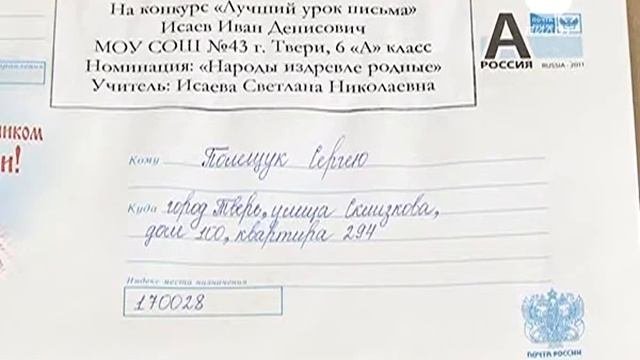 На конкурс «Лучший урок письма»
Исаев Иван Денисович
МОУ СОШ №43 г. Твери, 6 «А» класс
Номинация: «Народы издревле родные»
Учитель: Исаева Светлана Николаевна
ПОЧТА
А
РОССИЯ
RUSSIA - 2011
и!
Кому Полещук Сергею
Куда город Тверь, улица Склизкова,
дом 100, квартира 294
Индекс места назначения
170028
ПОЧТА РОССИИ